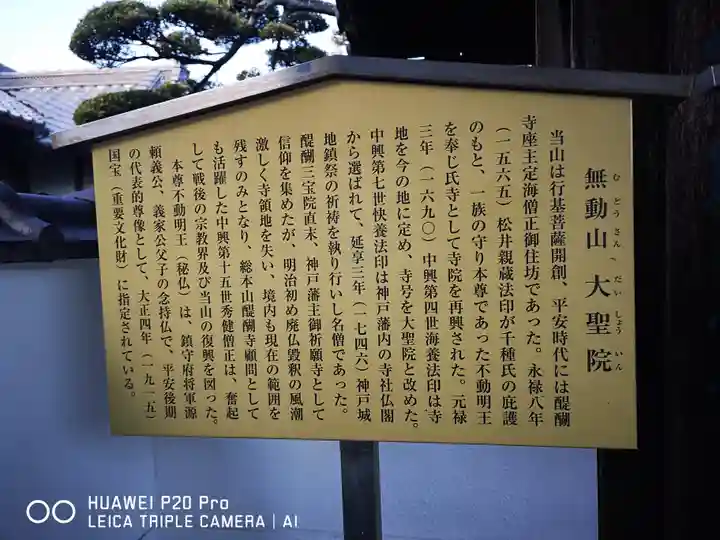 無動山 大聖院
むどうさん だいしょういん
当山は行基菩薩開創、平安時代には醍醐
寺座主定海僧正御住坊であった。永禄八年
(一五六五)松井親蔵法印が千種氏の庇護
のもと、一族の守り本尊であった不動明王
を奉じ氏寺として寺院を再興された。元禄
三年(一六九〇)中興第四世海養法印は寺
地を今の地に定め、寺号を大聖院と改めた。
中興第七世快養法印は神戸藩内の寺社仏閣
から選ばれて、延享三年(一七四六)神戸城
地鎮祭の祈祷を執り行いし名僧であった。
醍醐三宝院直末、神戸藩主御祈願寺として
信仰を集めたが、明治初め廃仏毀釈の風潮
激しく寺領地を失い、境内も現在の範囲を
残すのみとなり、総本山醍醐寺顧問として
も活躍した中興第十五世秀健僧正は、奮起
して戦後の宗教界及び当山の復興を図った。
本尊不動明王(秘仏)は、鎮守府将軍源
頼義公、義家公父子の念持仏で、平安後期
の代表的尊像として、大正四年(一九一五)
国宝(重要文化財)に指定されている。
HUAWEI P20 Pro
LEICA TRIPLE CAMERA | AI